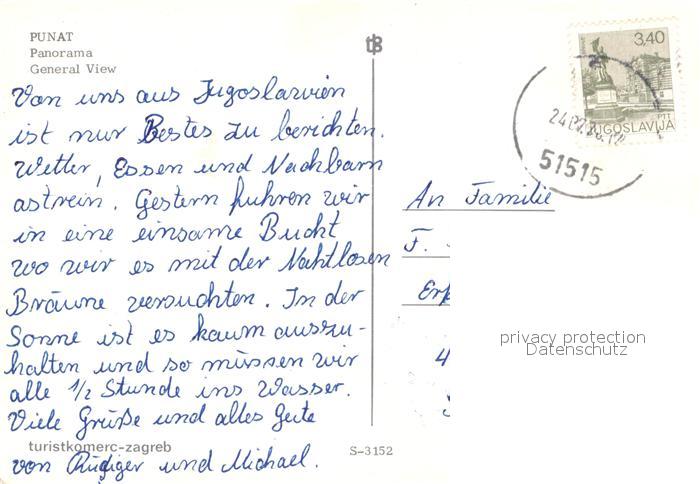 PUNAT
Panorama
General View
Von uns aus Jugoslawien
ist nur Bestes zu berichten.
Wetter, Essen und Nachbarn
astrein. Gestern fuhren wir
in eine einsame Bucht
wo wir es mit der Nahtlosen
Bräune versuchten. In der
Sonne ist es kaum auszu-
halten und so müssen wir
alle 1/2 Stunde ins Wasser.
Viele Grüße und alles Gute
von Rüdiger und Michael.
turistkomerc-zagreb
S-3152
tB
3,40
JUGOSLAVIJA
PTT
51515
An Familie
F.
4
privacy protection
Datenschutz